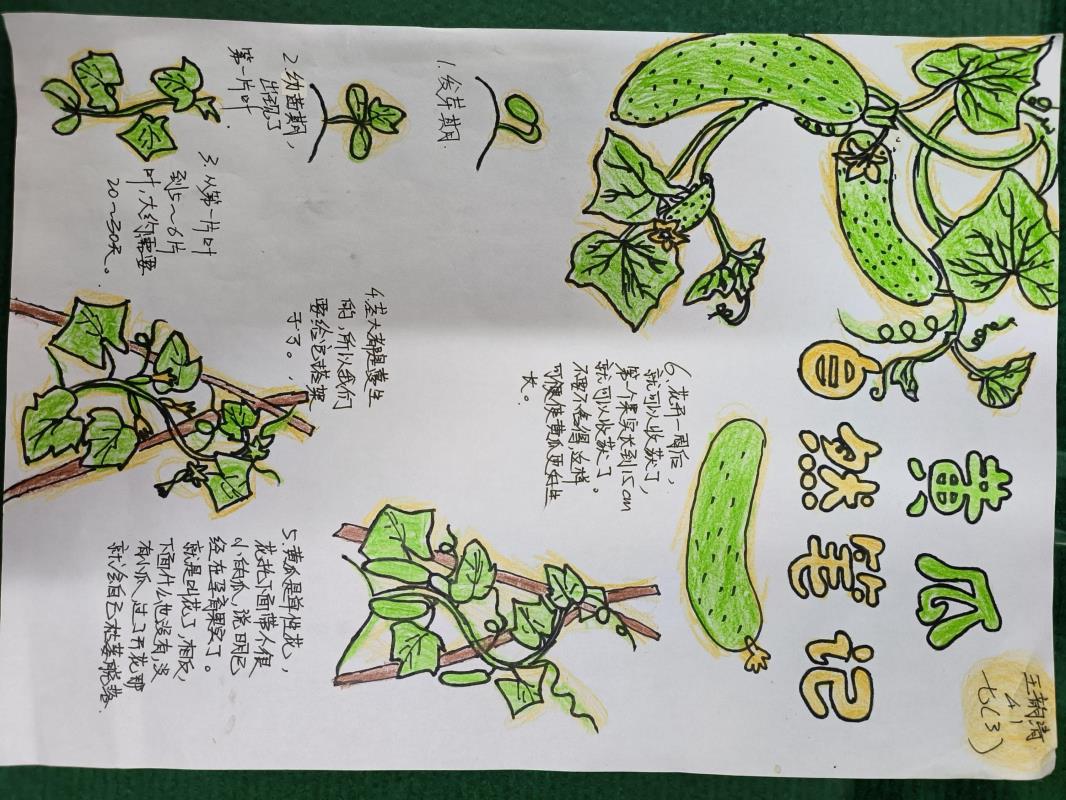 黄瓜
自然笔记
七(3)
41
1.发芽期.
2.幼苗期,
出现了
第一片叶.
3.从第一片叶
到5~6片
叶,大约需要
20~30天。
4.茎大都是蔓生
的,所以我们
要给它搭架
子了。
5.黄瓜是单性花,
花托下面带个很
小的瓜,说明已
经在孕育果实了。
就是叫花了,相反,
下面什么也没有,没
有小瓜,过了开花期
就会自己枯萎脱落.
6.花开一周后,
就可以收获了,
第一个果实长到15cm
就可以收获了。
不要不舍得,这样
使黄瓜更好生
长。